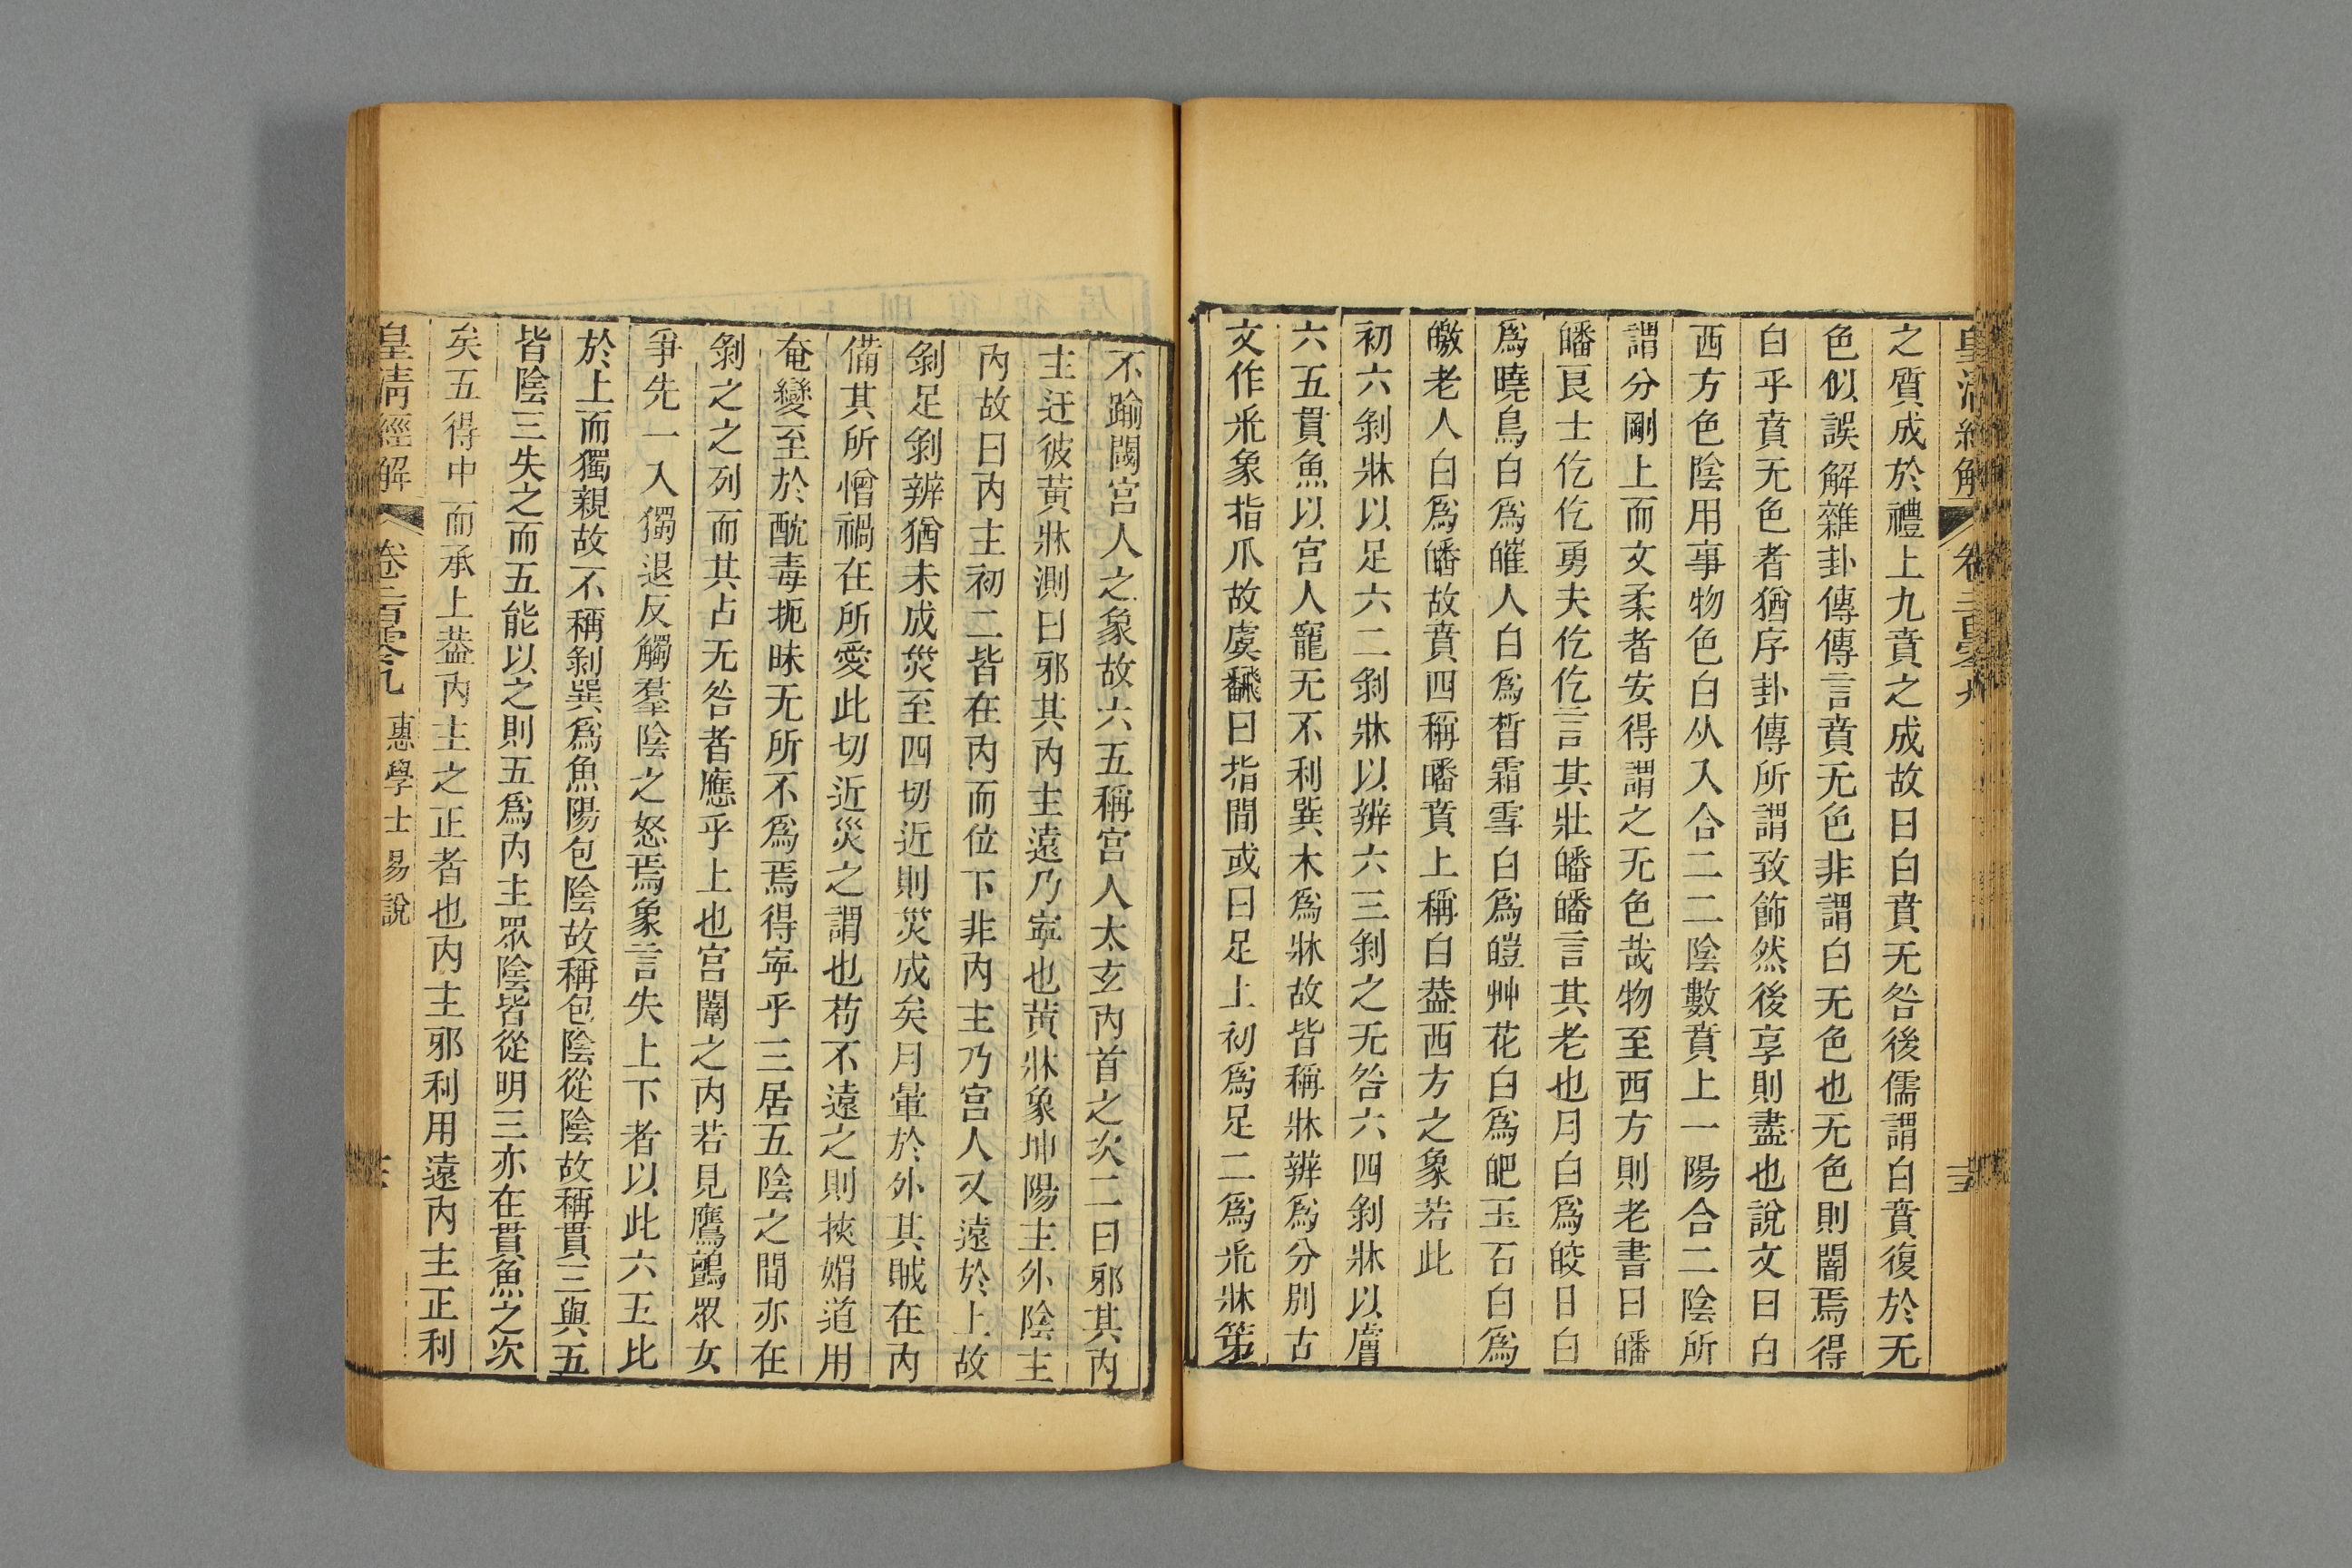 皇清經解 卷二百零九
之質成於禮上九賁之成故曰白賁无咎後儒謂白賁復於无
色似誤解雜卦傳傳言賁无色非謂白无色也无色則闇焉得
白乎賁无色者猶序卦傳所謂致飾然後享則盡也說文曰白
西方色陰用事物色白从入合二二陰數賁上一陽合二陰所
謂分剛上而文柔者安得謂之无色哉物至西方則老書曰皤
皤艮士仡仡勇夫仡仡言其壯皤皤言其老也月白爲皎日白
爲曉鳥白爲皠人白爲皙霜雪白爲皚艸花白爲皅玉石白爲
皦老人白爲皤故賁四稱皤賁上稱白葢西方之象若此
初六剝牀以足六二剝牀以辨六三剝之无咎六四剝牀以膚
六五貫魚以宫人寵无不利巽木爲牀故皆稱牀辨爲分別古
文作釆象指爪故虞飜曰指間或曰足上初爲足二爲釆牀第
不踰閾宫人之象故六五稱宫人太玄内首之次二曰邪其内
主迂彼黃牀測曰邪其内主遠乃寍也黃牀象坤陽主外陰主
内故曰内主初二皆在内而位下非内主乃宫人又遠於上故
剝足剝辨猶未成災至四切近則災成矣月暈於外其賊在内
備其所憎禍在所愛此切近災之謂也苟不遠之則挾媚道用
奄變至於酖毒扼昧无所不爲焉得寍乎三居五陰之間亦在
剝之之列而其占无咎者應乎上也宫闈之内若見鷹鸇眾女
爭先一入獨退反觸羣陰之怒焉象言失上下者以此六五比
於上而獨親故不稱剝巽爲魚陽包陰故稱包陰從陰故稱貫三與五
皆陰三失之而五能以之則五爲内主眾陰皆從明三亦在貫魚之次
矣五得中而承上葢内主之正者也内主邪利用遠内主正利
皇清經解 卷二百零九 惠學士易說